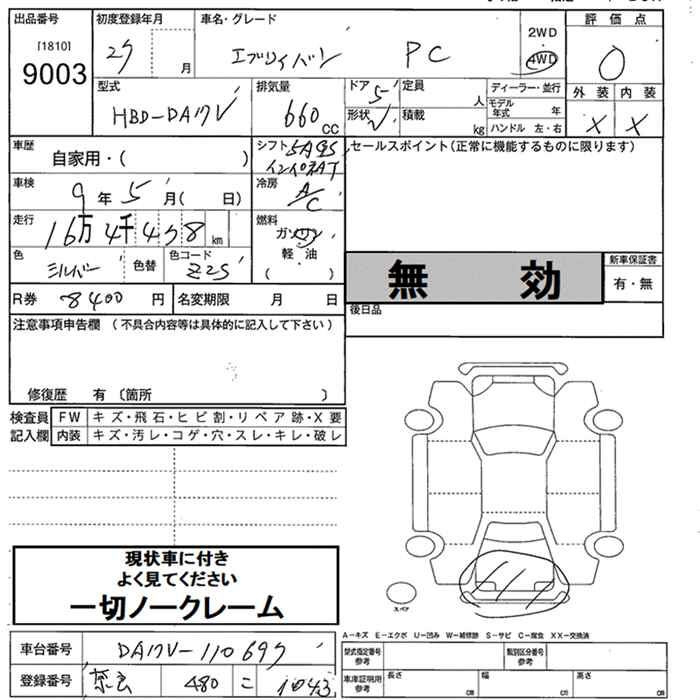 出品番号
[1810]
9003
初度登録年月
27
月
車名・グレード
エブリイバン PC
2WD
4WD
評価点
0
型式
HBD-DA17V
排気量
660
CC
ドア
5
形状
V
定員
人
積載
kg
ディーラー・並行
モデル年式
年
ハンドル 左・右
外装
内装
X
X
車歴
自家用・( )
シフト
5AGS
インパネAT
冷房
A/C
セールスポイント(正常に機能するものに限ります)
車検
9年5月( 日)
走行
16万4千438km
燃料
ガソリン
軽油
( )
色
シルバー
色替
色コード
Z2S
無効
新車保証書
有・無
R券
8400円
名変期限 月 日
後日品
注意事項申告欄 (不具合内容等は具体的に記入して下さい)
修復歴 有 〔箇所 〕
検査員
記入欄
FW キズ・飛石・ヒビ割・リペア跡・X要
内装 キズ・汚レ・コゲ・穴・スレ・キレ・破レ
現状車に付き
よく見てください
一切ノークレーム
スペア
A-キズ E-エクボ U-凹み W-補修跡 S-サビ C-腐食 XX-交換済
車台番号
DA17V-110697
登録番号
奈良 480 こ 1043
型式指定番号
参考
類別区分番号
参考
車庫証明用
参考
長さ
cm
幅
cm
高さ
cm